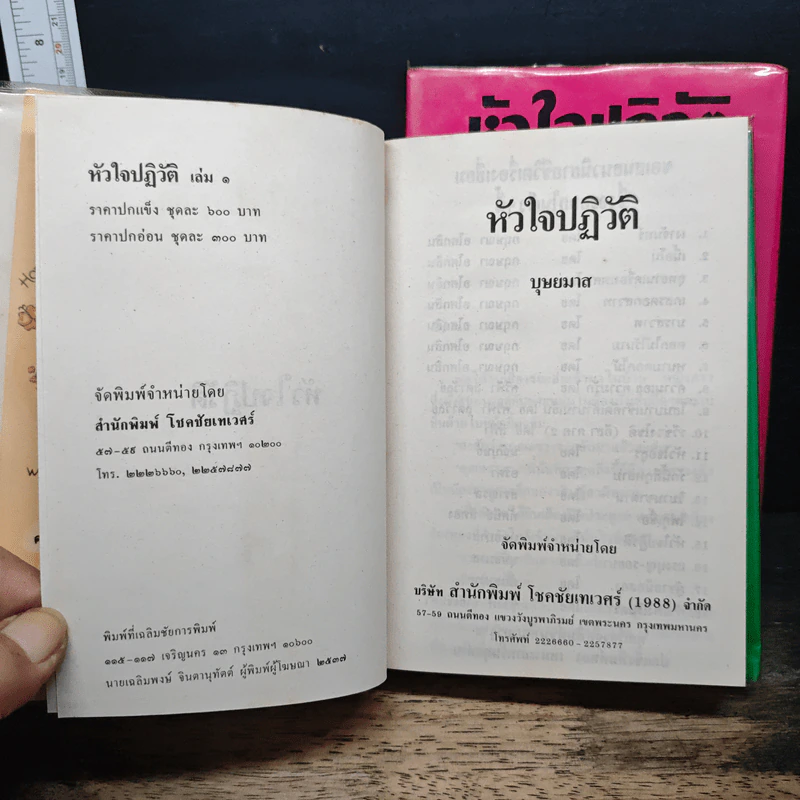 หัวใจปฏิวัติ
หัวใจปฏิวัติ เล่ม ๑
ราคาปกแข็ง ชุดละ ๖๐๐ บาท
ราคาปกอ่อน ชุดละ ๓๐๐ บาท
จัดพิมพ์จำหน่ายโดย
สำนักพิมพ์ โชคชัยเทเวศร์
๕๗-๕๙ ถนนตีทอง กรุงเทพฯ ๑๐๒๐๐
โทร. ๒๒๒๖๖๖๐, ๒๒๕๗๘๗๗
พิมพ์ที่เฉลิมชัยการพิมพ์
๑๑๕-๑๑๗ เจริญนคร ๑๓ กรุงเทพฯ ๑๐๖๐๐
นายเฉลิมพงษ์ จินดานุทัตต์ ผู้พิมพ์ผู้โฆษณา ๒๕๓๗
หัวใจปฏิวัติ
บุษยมาส
จัดพิมพ์จำหน่ายโดย
บริษัท สำนักพิมพ์ โชคชัยเทเวศร์ (1988) จำกัด
57-59 ถนนตีทอง แขวงวังบูรพาภิรมย์ เขตพระนคร กรุงเทพมหานคร
โทรศัพท์ 2226660-2257877